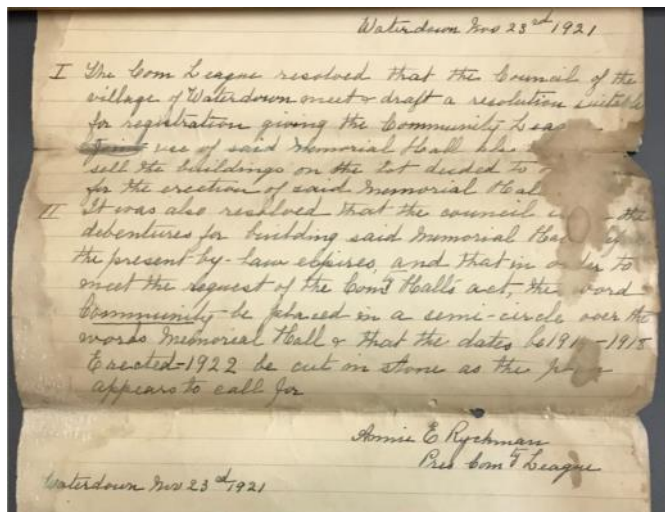 Waterdown Nov 23rd 1921
I The Com League resolved that the Council of the
village of Waterdown meet & draft a resolution suitable
for registration giving the Community
use of said Memorial Hall also
sell the buildings on the lot deeded to
for the erection of said Memorial
II It was also resolved that the council the
debentures for building said Memorial
the present by-law expires, and that in order to
meet the request of the Comty Halls act, the word
Community be placed in a semi-circle over the
words Memorial Hall & that the dates be -1918
Erected-1922 be cut in stone as the
appears to call for
Annie E Ryckman
Pres Comty League
Waterdown Nov 23rd 1921